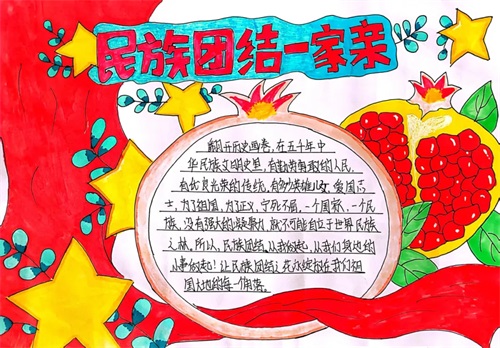 民族团结一家亲
翻开历史画卷,在五千年中
华民族文明史里,有勤劳勇敢的人民,
有优良光荣的传统,有多少英雄儿女,爱国志
士,为了祖国,为了正义,宁死不屈,一个国家,一个民
族,没有强大的凝聚力,就不可能自立于世界民族
之林,所以,民族团结,从我做起,从我们身边的
小事做起!让民族团结之花永绽放在我们祖
国大地的每一个角落。